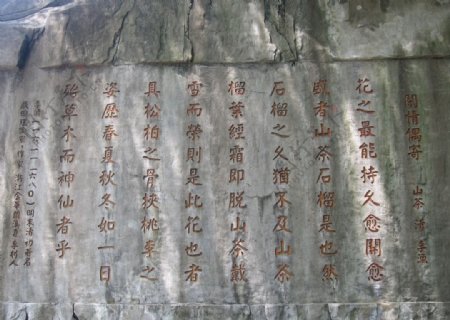 閒情偶寄 山茶 清 李漁
花之最能持久愈開愈
盛者山茶石榴是也然
石榴之久猶不及山茶
榴葉經霜即脱山茶戴
雪而榮則是此花也者
具松柏之骨挾桃李之
姿歷春夏秋冬如一日
殆草木而神仙者乎
李漁(一六一一-一六八〇)明末清初著名